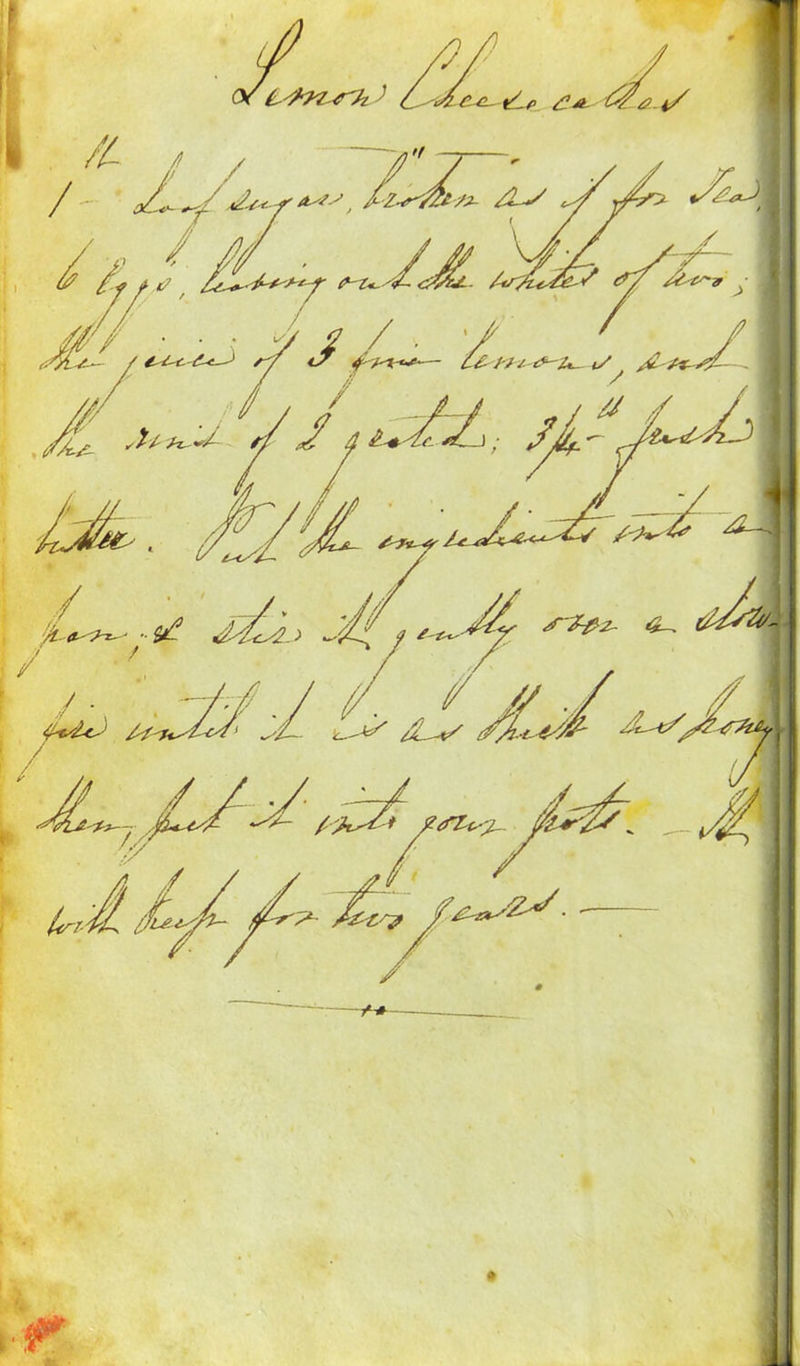 Lemon Cheesecakes
1 lb Loaf sugar, broken as if for Tea,
6 Eggs, leaving out the whites of two;
the juice of 3 fine lemons, and
the rind of 2 grated; 3/4 lb fresh
butter. Put the ingredients into a
pan, & stir it gently over a slow
fire until it is as thick as honey
then, put it into your pots. - It
will keep for two years. —